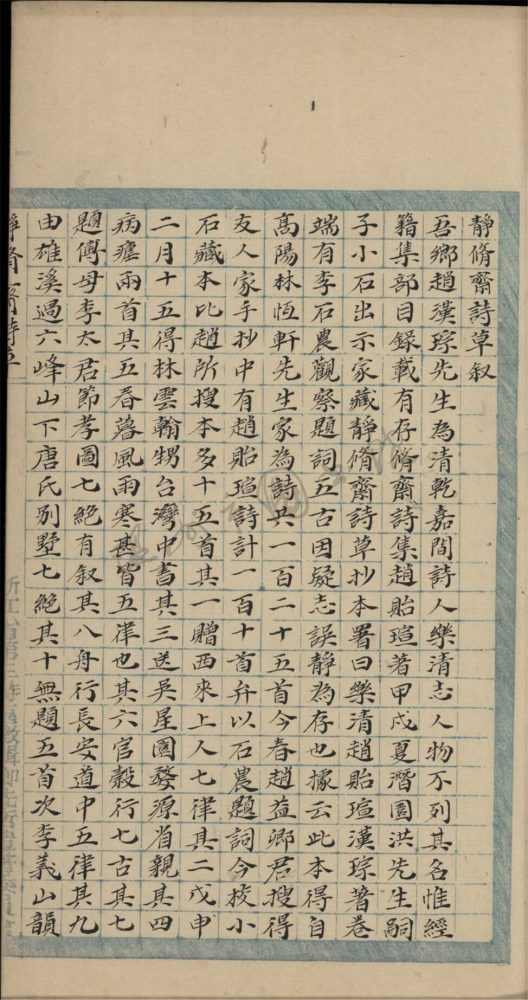 靜脩齋詩草叙
吾鄉趙漢琮先生為清乾嘉間詩人樂清志人物不列其名惟經
籍集部目錄載有存脩齋詩集趙貽瑄著甲戍夏潛園洪先生嗣
子小石出示家藏靜脩齋詩草抄本署曰樂清趙貽瑄漢琮著卷
端有李石農觀察題詞五古因疑志誤靜為存也據云此本得自
高陽林恆軒先生家為詩共一百二十五首今春趙益卿君搜得
友人家手抄中有趙貽瑄詩計一百十首弁以石農題詞今挍小
石藏本比趙所搜本多十五首其一贈西來上人七律其二戊申
二月十五得林雲翰甥台灣中書其三送吳星園婺源省親其四
病瘧兩首其五春暮風雨寒甚皆五律也其六官穀行七古其七
題傅母李太君節孝圖七絕有叙其八舟行長安道中五律其九
由雄溪過六峰山下唐氏別墅七絕其十無題五首次李義山韻